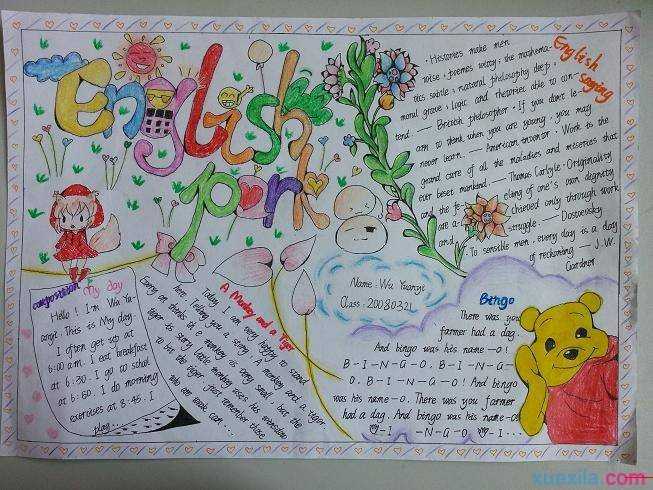 English
park
English
saying
· Histories make men
wise · poemes witty · the mathema-
tics subtle · natural philosophy deep ·
moral grave · logic and rhetoric able to con-
tend —— British philosopher · If you don't le-
arn to think when you are young, you may
never learn. —— American inventor · Work is the
grand cure of all the maladies and miseries that
ever beset mankind. —— Thomas Carlyle · Originality
and the fe- eling of one's own dignity
are a- chieved only through work
and struggle. —— Dostoevsky
· To sensible men, every day is a day
of reckoning —— J.W.
Gardner
composition My day
Hello ! I'm Wu Yu-
angt . This is My day .
I often get up at
6:00 a.m. I eat breakfast
at 6:30 . I go to school
at 6:50 . I do morning
exercises at 8:45 . I
play ...
A Monkey and a Tiger
Today I am very happy to stand
here telling you a story. A monkey and a tiger.
Every on thinks the monkey is only small, but the
tiger is story little monkey uses his wisdom
to win the tiger. Just remember those
who are weak can ....
Name : Wu Yuangt
Class : 20080321
Bingo
There was you
farmer had a dag.
And bingo was his name -O !
B - I - N - G - O. B - I - N - G -
O. B - I - N - G - O ! And bingo
was his name -O. There was you farmer
had a dag. And bingo was his name -O
- I - N - G - O - I ...
xuexila.com